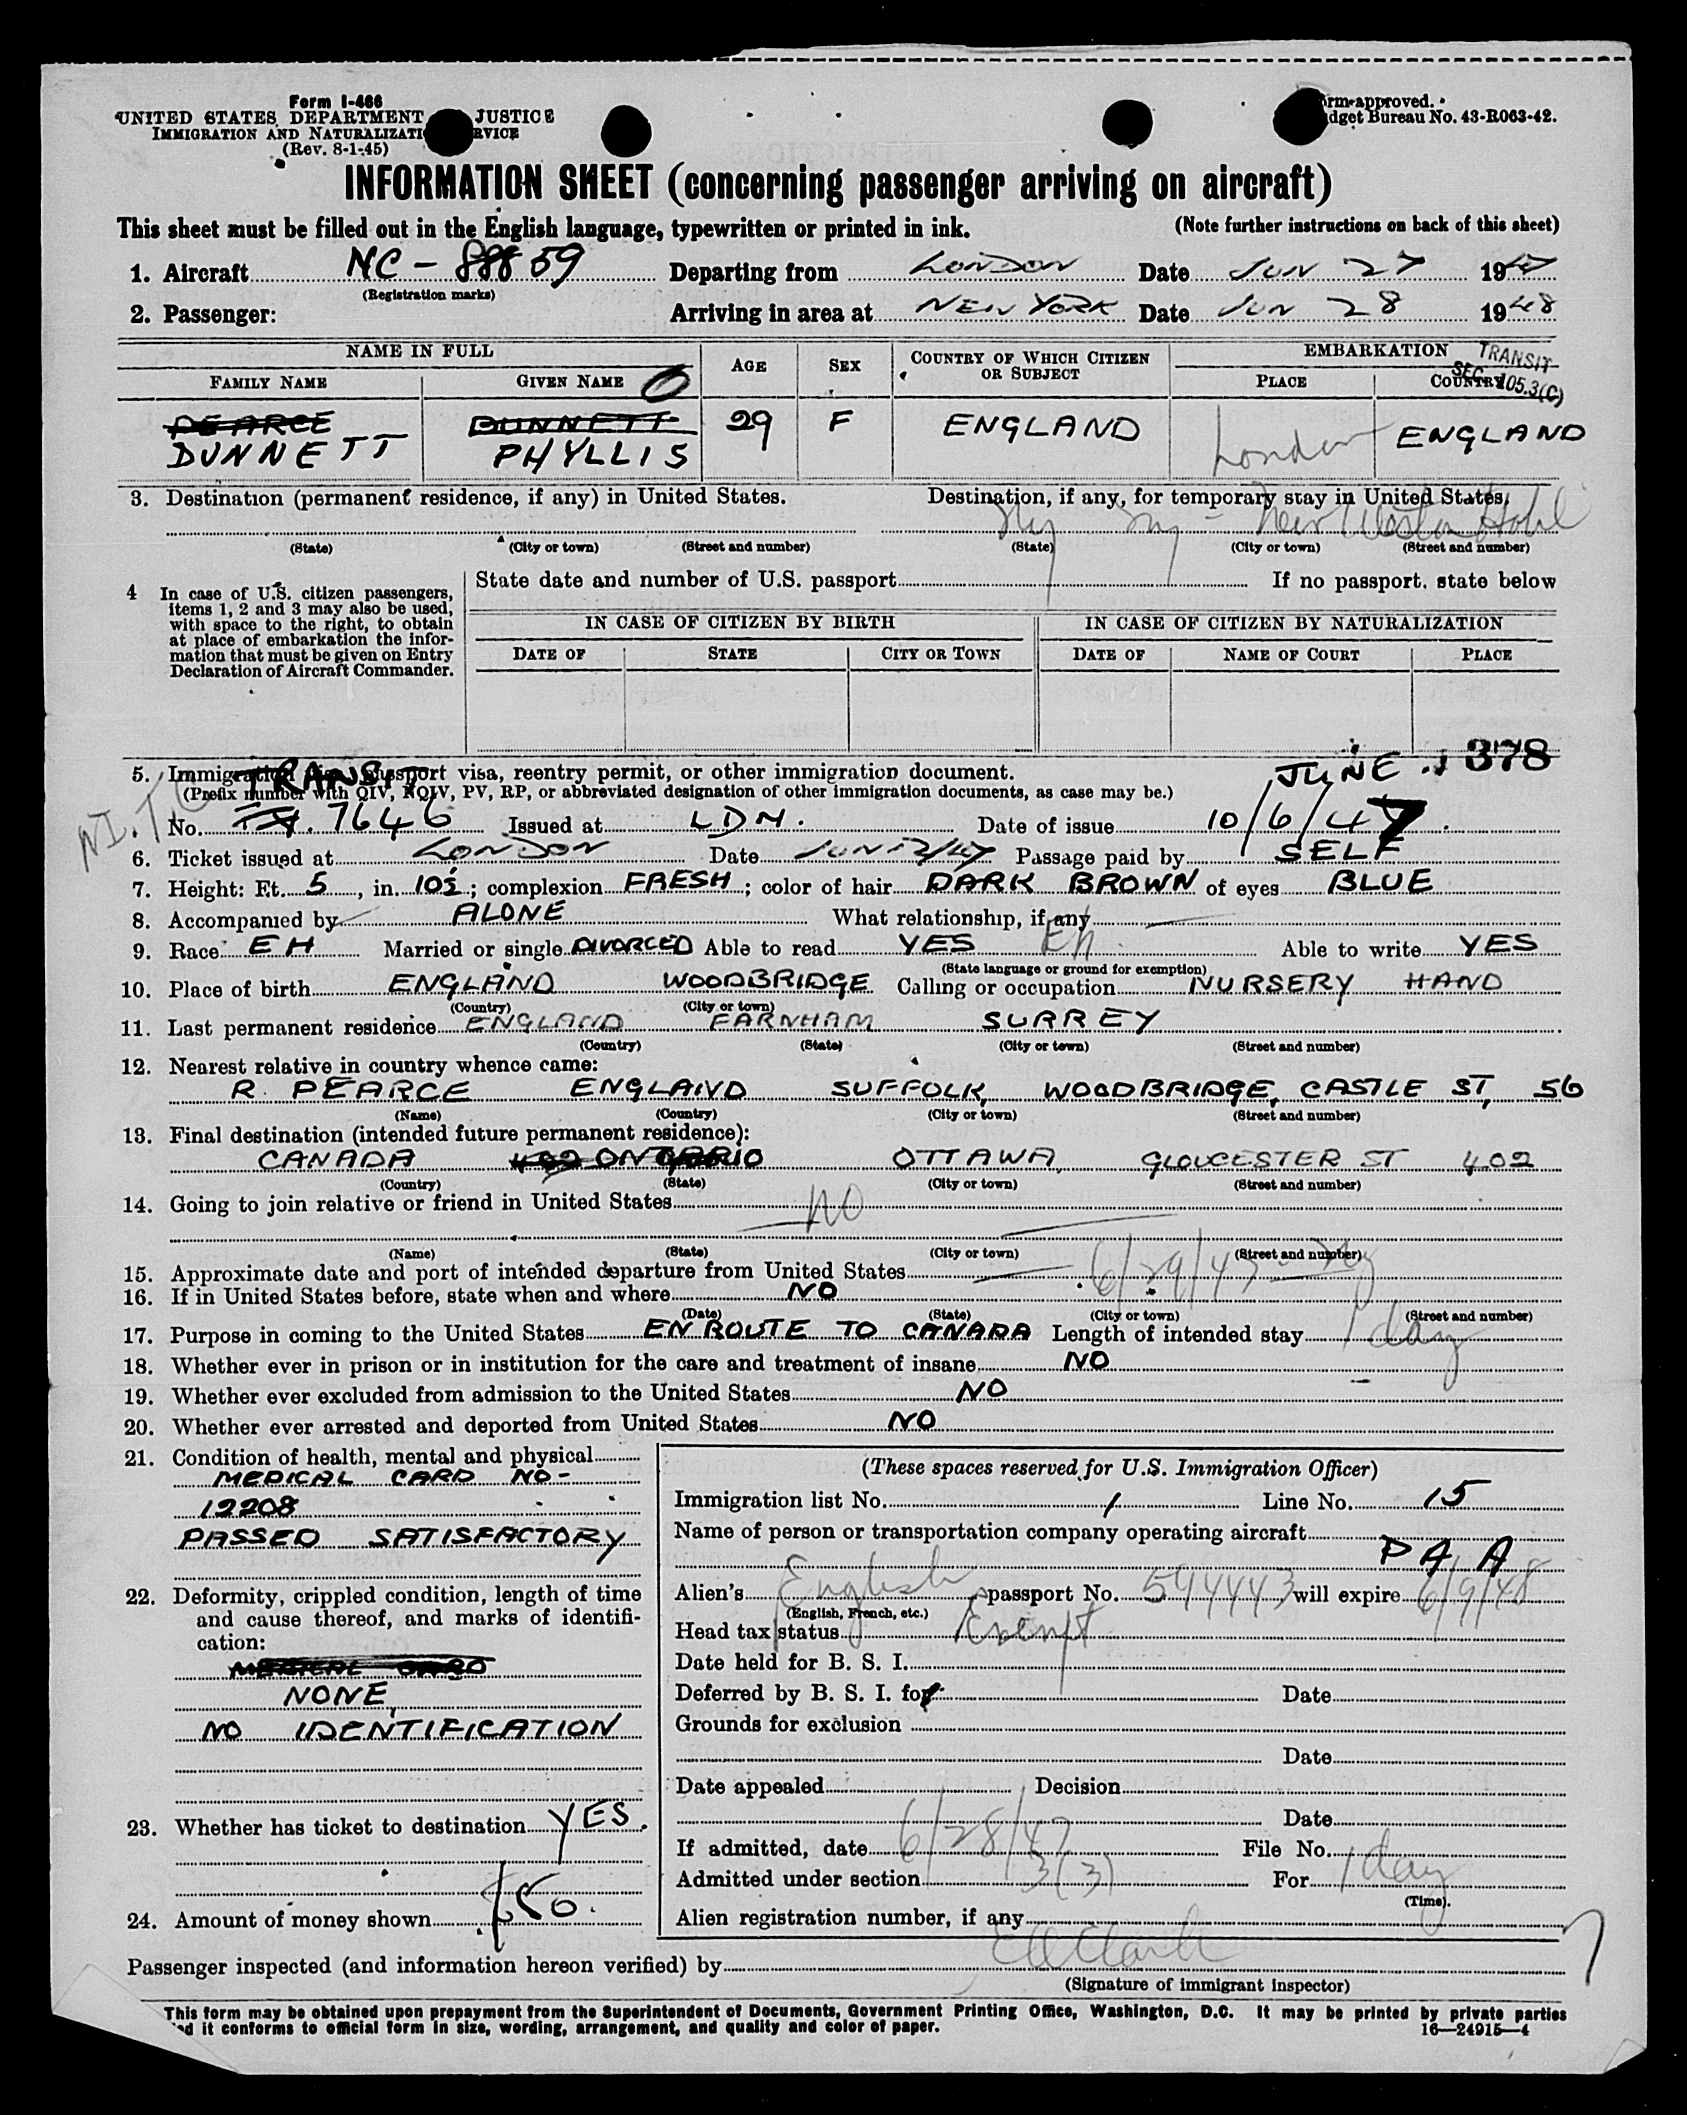 Form I-466
UNITED STATES DEPARTMENT JUSTICE
IMMIGRATION AND NATURALIZATI RVICE
(Rev. 8-1-45)
rm approved.
dget Bureau No. 43-R063-42.
INFORMATION SHEET (concerning passenger arriving on aircraft)
This sheet must be filled out in the English language, typewritten or printed in ink. (Note further instructions on back of this sheet)
1. Aircraft NC - 88859 Departing from LONDON Date JUN 27 1947
(Registration marks)
2. Passenger: Arriving in area at NEW YORK Date JUN 28 1948
NAME IN FULL AGE SEX COUNTRY OF WHICH CITIZEN OR SUBJECT EMBARKATION TRANSIT
FAMILY NAME GIVEN NAME PLACE COUNTRY SEC. 105.3(C)
PEARCE DUNNETT
DUNNETT PHYLLIS 29 F ENGLAND London ENGLAND
3. Destination (permanent residence, if any) in United States. Destination, if any, for temporary stay in United States,
Hotel
(State) (City or town) (Street and number) (State) (City or town) (Street and number)
4 In case of U.S. citizen passengers, items 1, 2 and 3 may also be used, with space to the right, to obtain at place of embarkation the information that must be given on Entry Declaration of Aircraft Commander.
State date and number of U.S. passport If no passport, state below
IN CASE OF CITIZEN BY BIRTH IN CASE OF CITIZEN BY NATURALIZATION
DATE OF STATE CITY OR TOWN DATE OF NAME OF COURT PLACE
378
5. Immigration passport visa, reentry permit, or other immigration document. JUNE
(Prefix number with QIV, NQIV, PV, RP, or abbreviated designation of other immigration documents, as case may be.)
TRANSIT
No. 7646 Issued at LDN. Date of issue 10/6/47
6. Ticket issued at LONDON Date JUN 12/47 Passage paid by SELF
7. Height: Ft. 5, in. 10½; complexion FRESH; color of hair DARK BROWN of eyes BLUE
8. Accompanied by ALONE What relationship, if any
9. Race EH Married or single DIVORCED Able to read YES En Able to write YES
(State language or ground for exemption)
10. Place of birth ENGLAND WOODBRIDGE Calling or occupation NURSERY HAND
(Country) (City or town)
11. Last permanent residence ENGLAND FARNHAM SURREY
(Country) (State) (City or town) (Street and number)
12. Nearest relative in country whence came:
R. PEARCE ENGLAND SUFFOLK, WOODBRIDGE, CASTLE ST, 56
(Name) (Country) (City or town) (Street and number)
13. Final destination (intended future permanent residence):
CANADA ONTARIO OTTAWA, GLOUCESTER ST 402
(Country) (State) (City or town) (Street and number)
14. Going to join relative or friend in United States NO
(Name) (State) (City or town) (Street and number)
15. Approximate date and port of intended departure from United States 6/29/47 - Ny
16. If in United States before, state when and where NO
(Date) (State) (City or town) (Street and number)
17. Purpose in coming to the United States EN ROUTE TO CANADA Length of intended stay 1 day
18. Whether ever in prison or in institution for the care and treatment of insane NO
19. Whether ever excluded from admission to the United States NO
20. Whether ever arrested and deported from United States NO
21. Condition of health, mental and physical
MEDICAL CARD NO-
12208
PASSED SATISFACTORY
22. Deformity, crippled condition, length of time and cause thereof, and marks of identification:
MEDICAL CARD
NONE,
NO IDENTIFICATION
23. Whether has ticket to destination YES.
24. Amount of money shown
(These spaces reserved for U.S. Immigration Officer)
Immigration list No. 1 Line No. 15
Name of person or transportation company operating aircraft
PAA
Alien's English passport No. 594443 will expire 6/9/48
(English, French, etc.)
Head tax status Exempt
Date held for B. S. I.
Deferred by B. S. I. for Date
Grounds for exclusion
Date
Date appealed Decision
Date
If admitted, date 6/28/47 File No.
Admitted under section 3(3) For 1 day
(Time).
Alien registration number, if any
Passenger inspected (and information hereon verified) by
(Signature of immigrant inspector)
This form may be obtained upon prepayment from the Superintendent of Documents, Government Printing Office, Washington, D.C. It may be printed by private parties
ed it conforms to official form in size, wording, arrangement, and quality and color of paper. 16—24915—4